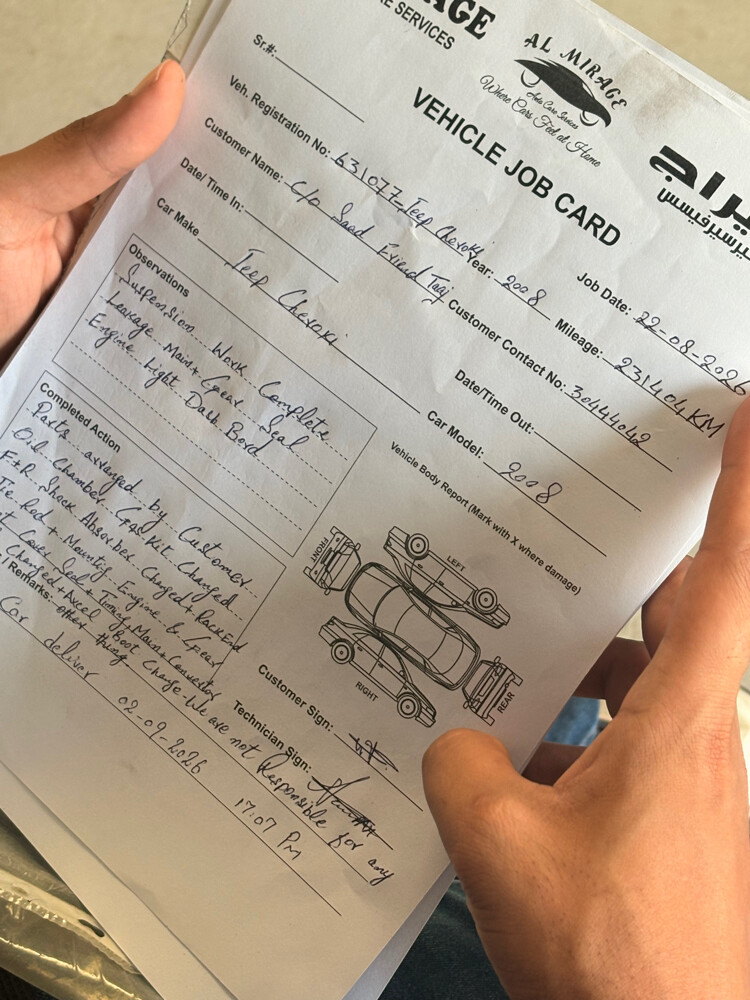 AGE
RE SERVICES
AL MIRAGE
Auto Care Services
Where Cars Feel at Home
يراج
يرسيرفيسس
VEHICLE JOB CARD
Sr.#:
Job Date: 22-08-2026
Veh. Registration No: 631077-Jeep Cheroki Year: 2008 Mileage: 231404KM
Customer Name: C/o Saad Friend Taaj Customer Contact No: 30444042
Date/Time In: Date/Time Out:
Car Make Jeep Cheroki Car Model: 2008
Observations
Suspension Work Complete
Leakage Main+Gear Seal
Engine Light Dash Bord
Vehicle Body Report (Mark with X where damage)
FRONT
LEFT
RIGHT
REAR
Completed Action
Parts arranged by Customer
Oil Chamber Gas Kit Changed
F+R Shock Absorber Changed+Rack End
Tie Rod Mounting Engine & Gear
Cover Seal+Timing Main+Convertor
Changed+Axel Boot Change-We are not Responsible for any
Remarks: other thing
Car deliver 02-09-2026 17:07 PM
Customer Sign:
Technician Sign: